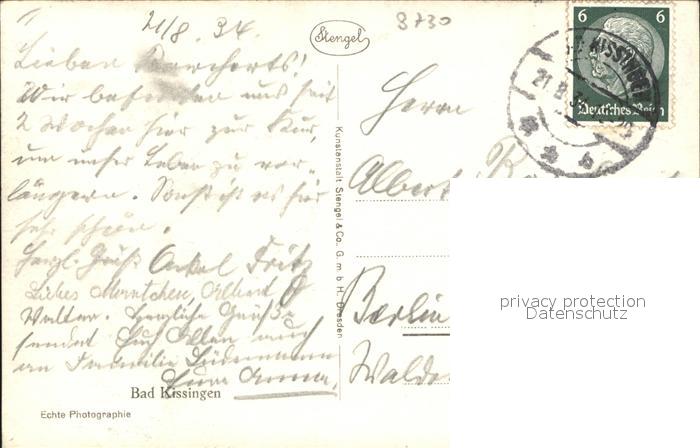 21/8. 34.
8730
Stengel
6 6
Deutsches Reich
BAD KISSINGEN
21.8.34
b
Lieben Borcherts!
Wir befinden uns seit
2 Wochen hier zur Kur,
um unser Leben zu ver-
längern. Sonst ist es hier
sehr schön.
Herzl. Grüße Onkel Fritz
Liebes Mariechen, Albert u
Walter. Herzliche Grüße
sendet Euch Allen auch
an Familie Lüdemann
Eure Anna.
Bad Kissingen
Echte Photographie
Kunstanstalt Stengel & Co. G. m. b. H. Dresden
Herrn
Albert
Berlin
Walde
privacy protection
Datenschutz